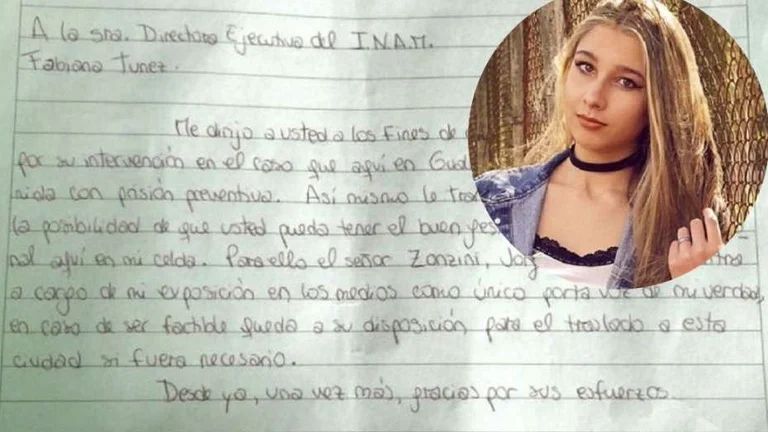 A la sra. Directora Ejecutiva del I.N.A.M.
Fabiana Tunez.
Me dirijo a usted a los fines de
por su intervención en el caso que aquí en
nida con prisión preventiva. Así mismo le
la posibilidad de que usted pueda tener el buen
nal aquí en mi celda. Para ello el señor Zanzini,
a cargo de mi exposición en los medios como único porta voz de mi verdad,
en caso de ser factible queda a su disposición para el traslado a esta
ciudad si fuera necesario.
Desde ya, una vez más, gracias por sus esfuerzos